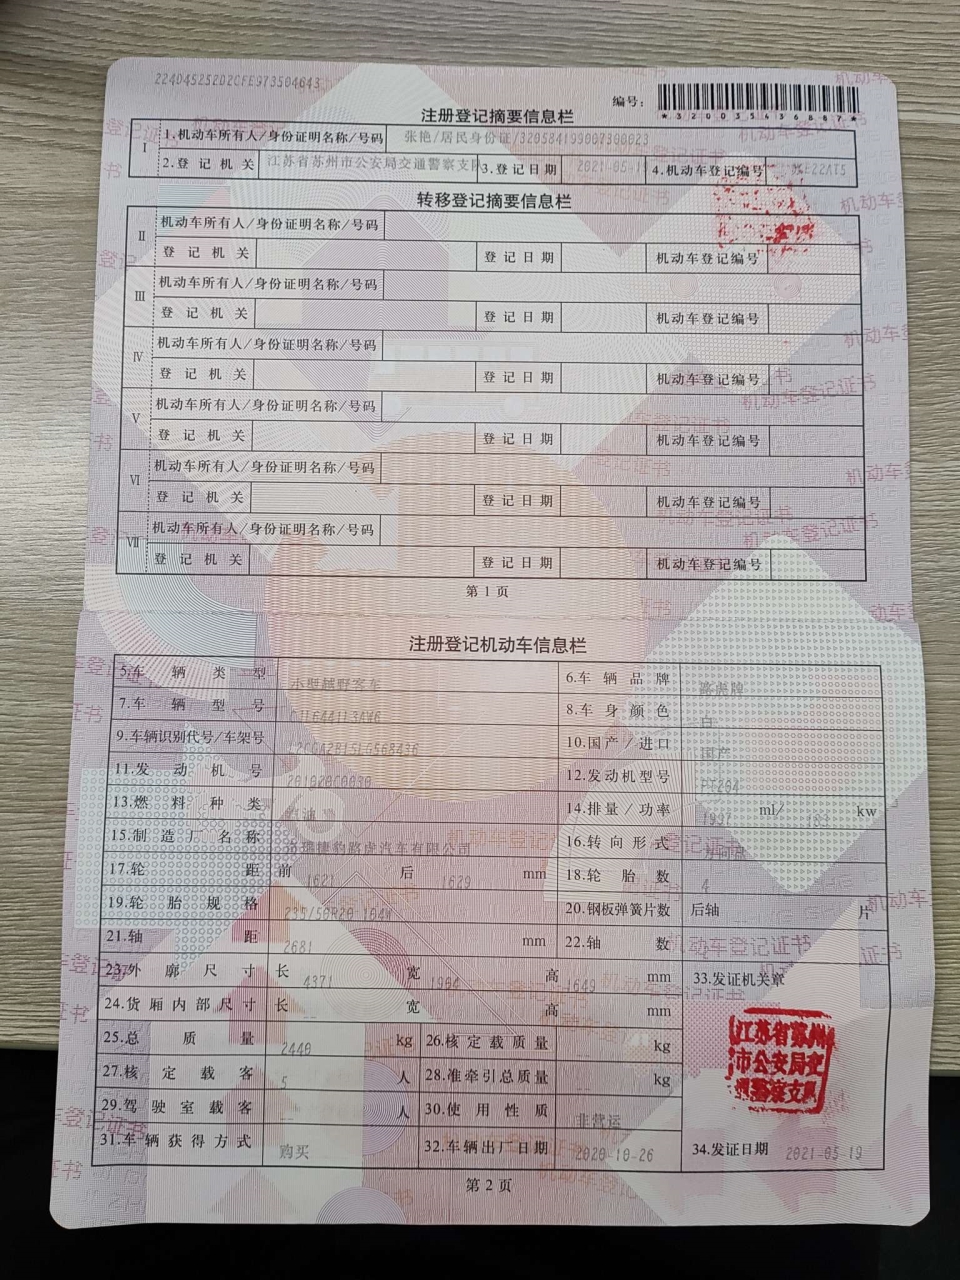 22404525202CFE973504643
编号：
*320035436887*
注册登记摘要信息栏
I 1.机动车所有人/身份证明名称/号码 张艳/居民身份证/320584199007300023
2.登记机关 江苏省苏州市公安局交通警察支队 3.登记日期 2021-05-1 4.机动车登记编号 E22AT5
转移登记摘要信息栏
II 机动车所有人/身份证明名称/号码
登记机关 登记日期 机动车登记编号
III 机动车所有人/身份证明名称/号码
登记机关 登记日期 机动车登记编号
IV 机动车所有人/身份证明名称/号码
登记机关 登记日期 机动车登记编号
V 机动车所有人/身份证明名称/号码
登记机关 登记日期 机动车登记编号
VI 机动车所有人/身份证明名称/号码
登记机关 登记日期 机动车登记编号
VII 机动车所有人/身份证明名称/号码
登记机关 登记日期 机动车登记编号
第1页
注册登记机动车信息栏
5.车辆类型 小型越野客车 6.车辆品牌 路虎牌
7.车辆型号 8.车身颜色 白
9.车辆识别代号/车架号 10.国产/进口 国产
11.发动机号 12.发动机型号 PT204
13.燃料种类 汽油 14.排量/功率 1997 ml/ kw
15.制造厂名称 捷豹路虎汽车有限公司 16.转向形式 方向盘
17.轮距 前 1621 后 1629 mm 18.轮胎数 4
19.轮胎规格 235/50R20 104W 20.钢板弹簧片数 后轴 片
21.轴距 2681 mm 22.轴数 2
23.外廓尺寸 长 4371 宽 1904 高 1649 mm 33.发证机关章
24.货厢内部尺寸 长 宽 高 mm
江苏省苏州市公安局交通警察支队
25.总质量 2440 kg 26.核定载质量 kg
27.核定载客 5 人 28.准牵引总质量 kg
29.驾驶室载客 人 30.使用性质 非营运
31.车辆获得方式 购买 32.车辆出厂日期 2020-10-26 34.发证日期 2021-05-19
第2页